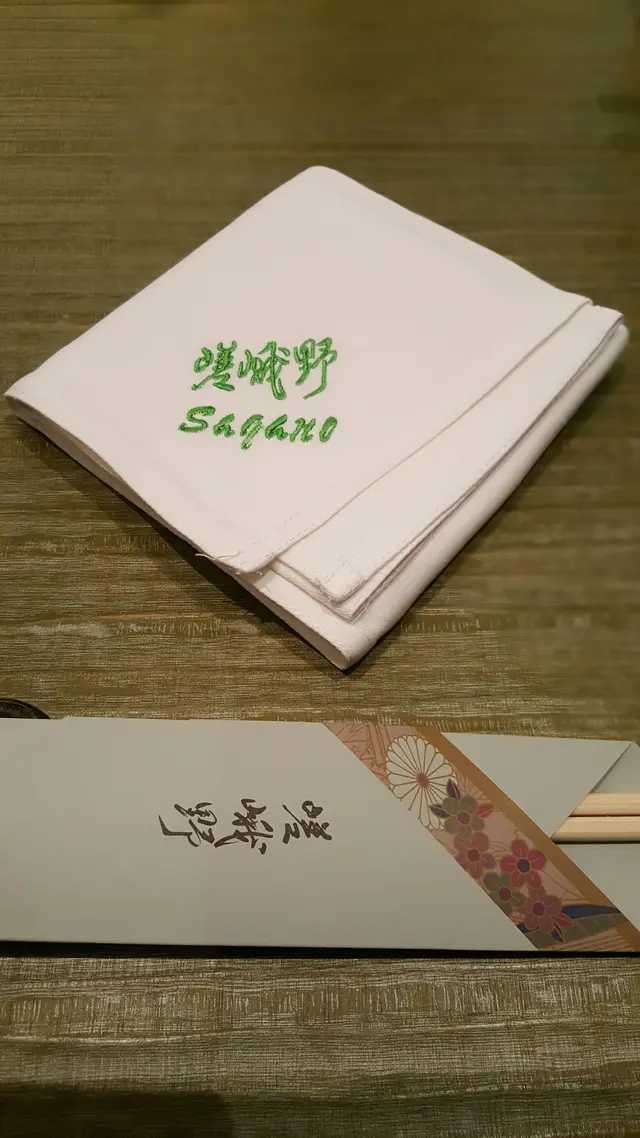 嵯峨野
Sagano
嵯峨野